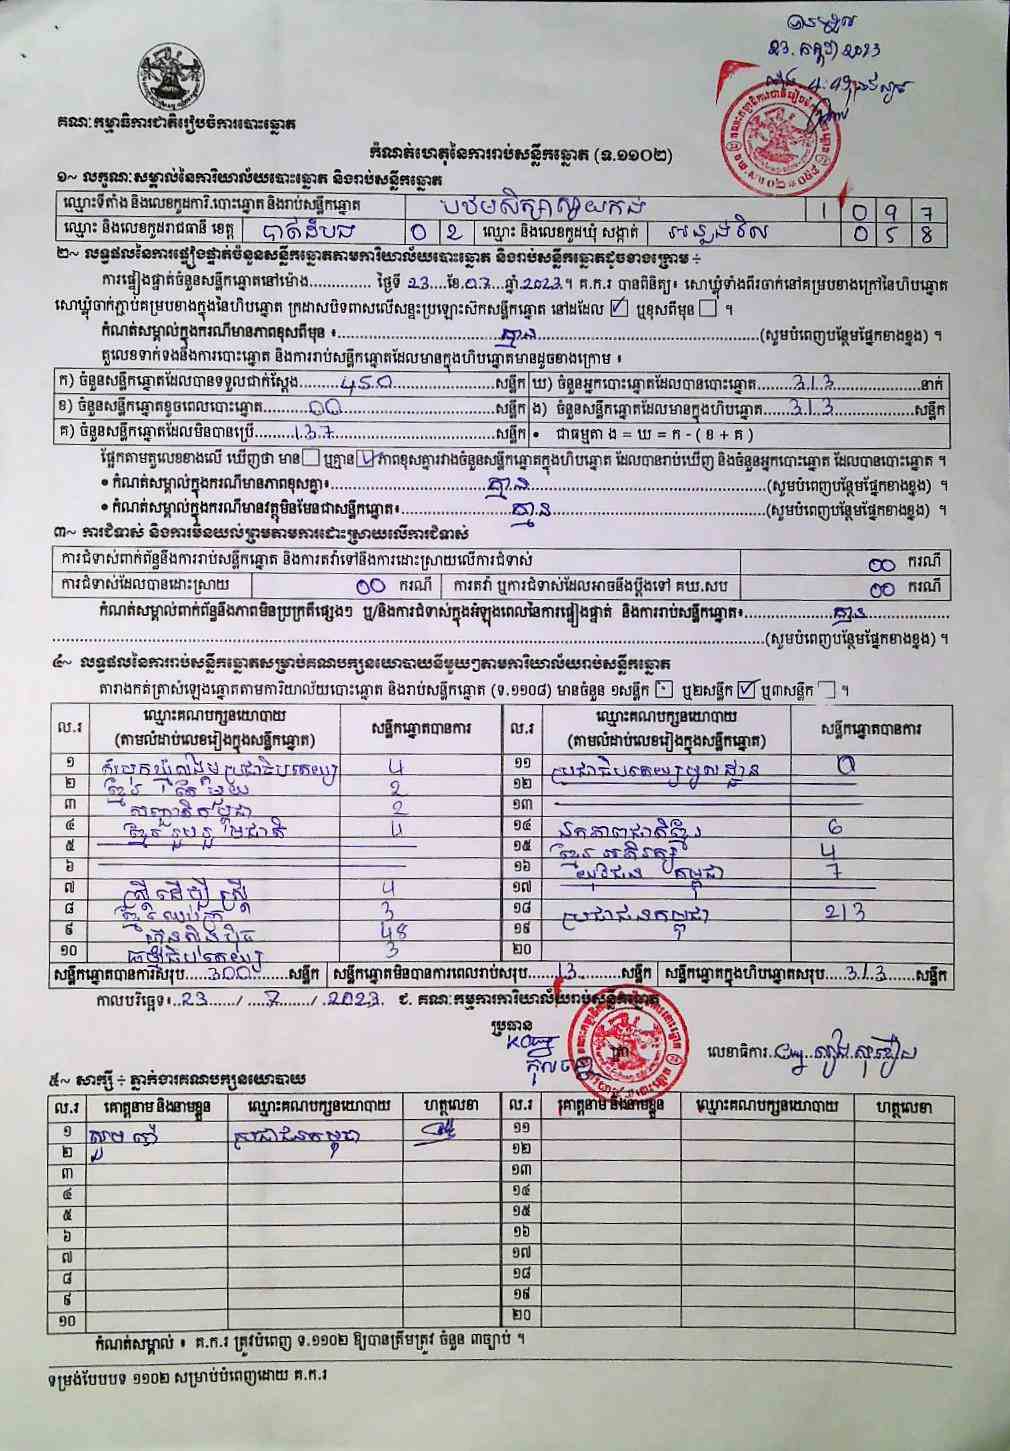 បានទទួល
23. កក្កដា 2023
គណៈកម្មាធិការជាតិរៀបចំការបោះឆ្នោត
កំណត់ហេតុនៃការរាប់សន្លឹកឆ្នោត (ទ.១១០២)
១~ លក្ខណៈសម្គាល់នៃការិយាល័យបោះឆ្នោត និងរាប់សន្លឹកឆ្នោត
ឈ្មោះទីតាំង និងលេខកូដការិ.បោះឆ្នោត និងរាប់សន្លឹកឆ្នោត បឋមសិក្សាស្វាយកង 1 0 9 7
ឈ្មោះ និងលេខកូដរាជធានី ខេត្ត បាត់ដំបង 0 2 ឈ្មោះ និងលេខកូដឃុំ សង្កាត់ អន្លង់វិល 0 5 8
២~ លទ្ធផលនៃការផ្ទៀងផ្ទាត់ចំនួនសន្លឹកឆ្នោតតាមការិយាល័យបោះឆ្នោត និងរាប់សន្លឹកឆ្នោតដូចខាងក្រោម ÷
ការផ្ទៀងផ្ទាត់ចំនួនសន្លឹកឆ្នោតនៅម៉ោង.............. ថ្ងៃទី 23....ខែ.07...ឆ្នាំ.2023.។ គ.ក.រ បានពិនិត្យ៖ សោឃ្លុំទាំងពីរចាក់នៅគម្របខាងក្រៅនៃហិបឆ្នោត
សោឃ្លុំចាក់ភ្ជាប់គម្របខាងក្នុងនៃហិបឆ្នោត ក្រដាសបិទពាសលើសន្ទះប្រឡោះស៊កសន្លឹកឆ្នោត នៅដដែល ☑ ឬខុសពីមុន ☐ ។
កំណត់សម្គាល់ក្នុងករណីមានភាពខុសពីមុន ៖........គ្មាន........(សូមបំពេញបន្ថែមផ្នែកខាងខ្នង) ។
តួលេខទាក់ទងនឹងការបោះឆ្នោត និងការរាប់សន្លឹកឆ្នោតដែលមានក្នុងហិបឆ្នោតមានដូចខាងក្រោម ៖
ក) ចំនួនសន្លឹកឆ្នោតដែលបានទទួលជាក់ស្តែង.......450........សន្លឹក ឃ) ចំនួនអ្នកបោះឆ្នោតដែលបានបោះឆ្នោត.......313........នាក់
ខ) ចំនួនសន្លឹកឆ្នោតខូចពេលបោះឆ្នោត.......00........សន្លឹក ង) ចំនួនសន្លឹកឆ្នោតដែលមានក្នុងហិបឆ្នោត.......313........សន្លឹក
គ) ចំនួនសន្លឹកឆ្នោតដែលមិនបានប្រើ.......137........សន្លឹក • ជាធម្មតា ង = ឃ = ក - ( ខ + គ )
ផ្អែកតាមតួលេខខាងលើ ឃើញថា មាន ☐ ឬគ្មាន ☑ ភាពខុសគ្នារវាងចំនួនសន្លឹកឆ្នោតក្នុងហិបឆ្នោត ដែលបានរាប់ឃើញ និងចំនួនអ្នកបោះឆ្នោត ដែលបានបោះឆ្នោត ។
• កំណត់សម្គាល់ក្នុងករណីមានភាពខុសគ្នា៖........គ្មាន........(សូមបំពេញបន្ថែមផ្នែកខាងខ្នង) ។
• កំណត់សម្គាល់ក្នុងករណីមានវត្ថុមិនមែនជាសន្លឹកឆ្នោត៖........គ្មាន........(សូមបំពេញបន្ថែមផ្នែកខាងខ្នង) ។
៣~ ការជំទាស់ និងការមិនយល់ព្រមតាមការដោះស្រាយលើការជំទាស់
ការជំទាស់ពាក់ព័ន្ធនឹងការរាប់សន្លឹកឆ្នោត និងការតវ៉ាទៅនឹងការដោះស្រាយលើការជំទាស់ 00 ករណី
ការជំទាស់ដែលបានដោះស្រាយ 00 ករណី ការតវ៉ា ឬការជំទាស់ដែលអាចនឹងប្តឹងទៅ គឃ.សប 00 ករណី
កំណត់សម្គាល់ពាក់ព័ន្ធនឹងភាពមិនប្រក្រតីផ្សេងៗ ឬ/និងការជំទាស់ក្នុងអំឡុងពេលនៃការផ្ទៀងផ្ទាត់ និងការរាប់សន្លឹកឆ្នោត៖........គ្មាន........
........(សូមបំពេញបន្ថែមផ្នែកខាងខ្នង) ។
៤~ លទ្ធផលនៃការរាប់សន្លឹកឆ្នោតសម្រាប់គណបក្សនយោបាយនីមួយៗតាមការិយាល័យរាប់សន្លឹកឆ្នោត
តារាងកត់ត្រាសំឡេងឆ្នោតតាមការិយាល័យបោះឆ្នោត និងរាប់សន្លឹកឆ្នោត (ទ.១១០៨) មានចំនួន ១សន្លឹក ☐ ឬ២សន្លឹក ☑ ឬ៣សន្លឹក ☐ ។
ល.រ ឈ្មោះគណបក្សនយោបាយ (តាមលំដាប់លេខរៀងក្នុងសន្លឹកឆ្នោត) សន្លឹកឆ្នោតបានការ ល.រ ឈ្មោះគណបក្សនយោបាយ (តាមលំដាប់លេខរៀងក្នុងសន្លឹកឆ្នោត) សន្លឹកឆ្នោតបានការ
១ សំបុកឃ្មុំសង្គមប្រជាធិបតេយ្យ 4 ១១ ប្រជាធិបតេយ្យមូលដ្ឋាន 0
២ ខ្មែរតែមួយ 2 ១២
៣ សញ្ជាតិកម្ពុជា 2 ១៣
៤ ខ្មែររួបរួមជាតិ ១៤ ឯកភាពជាតិខ្មែរ 6
៥ ១៥ ខ្មែរអភិរក្ស 4
៦ ១៦ យុវជនកម្ពុជា 7
៧ ស្ត្រីដើម្បីស្ត្រី 4 ១៧
៨ ខ្មែរឈប់ក្រ 3 ១៨ ប្រជាជនកម្ពុជា 213
៩ ហ្វ៊ុនស៊ិនប៉ិច 48 ១៩
១០ ធម្មាធិបតេយ្យ 3 ២០
សន្លឹកឆ្នោតបានការសរុប.....300.....សន្លឹក សន្លឹកឆ្នោតមិនបានការពេលរាប់សរុប.....13.....សន្លឹក សន្លឹកឆ្នោតក្នុងហិបឆ្នោតសរុប.....313.....សន្លឹក
កាលបរិច្ឆេទ៖..23....../...7....../..2023. ជ. គណៈកម្មការការិយាល័យរាប់សន្លឹកឆ្នោត
ប្រធាន
លេខាធិការ
៥~ សាក្សី ÷ ភ្នាក់ងារគណបក្សនយោបាយ
ល.រ គោត្តនាម និងនាមខ្លួន ឈ្មោះគណបក្សនយោបាយ ហត្ថលេខា ល.រ គោត្តនាម និងនាមខ្លួន ឈ្មោះគណបក្សនយោបាយ ហត្ថលេខា
១ ប្រជាជនកម្ពុជា ១១
២ ១២
៣ ១៣
៤ ១៤
៥ ១៥
៦ ១៦
៧ ១៧
៨ ១៨
៩ ១៩
១០ ២០
កំណត់សម្គាល់ ៖ គ.ក.រ ត្រូវបំពេញ ទ.១១០២ ឱ្យបានត្រឹមត្រូវ ចំនួន ៣ច្បាប់ ។
ទម្រង់បែបបទ ១១០២ សម្រាប់បំពេញដោយ គ.ក.រ